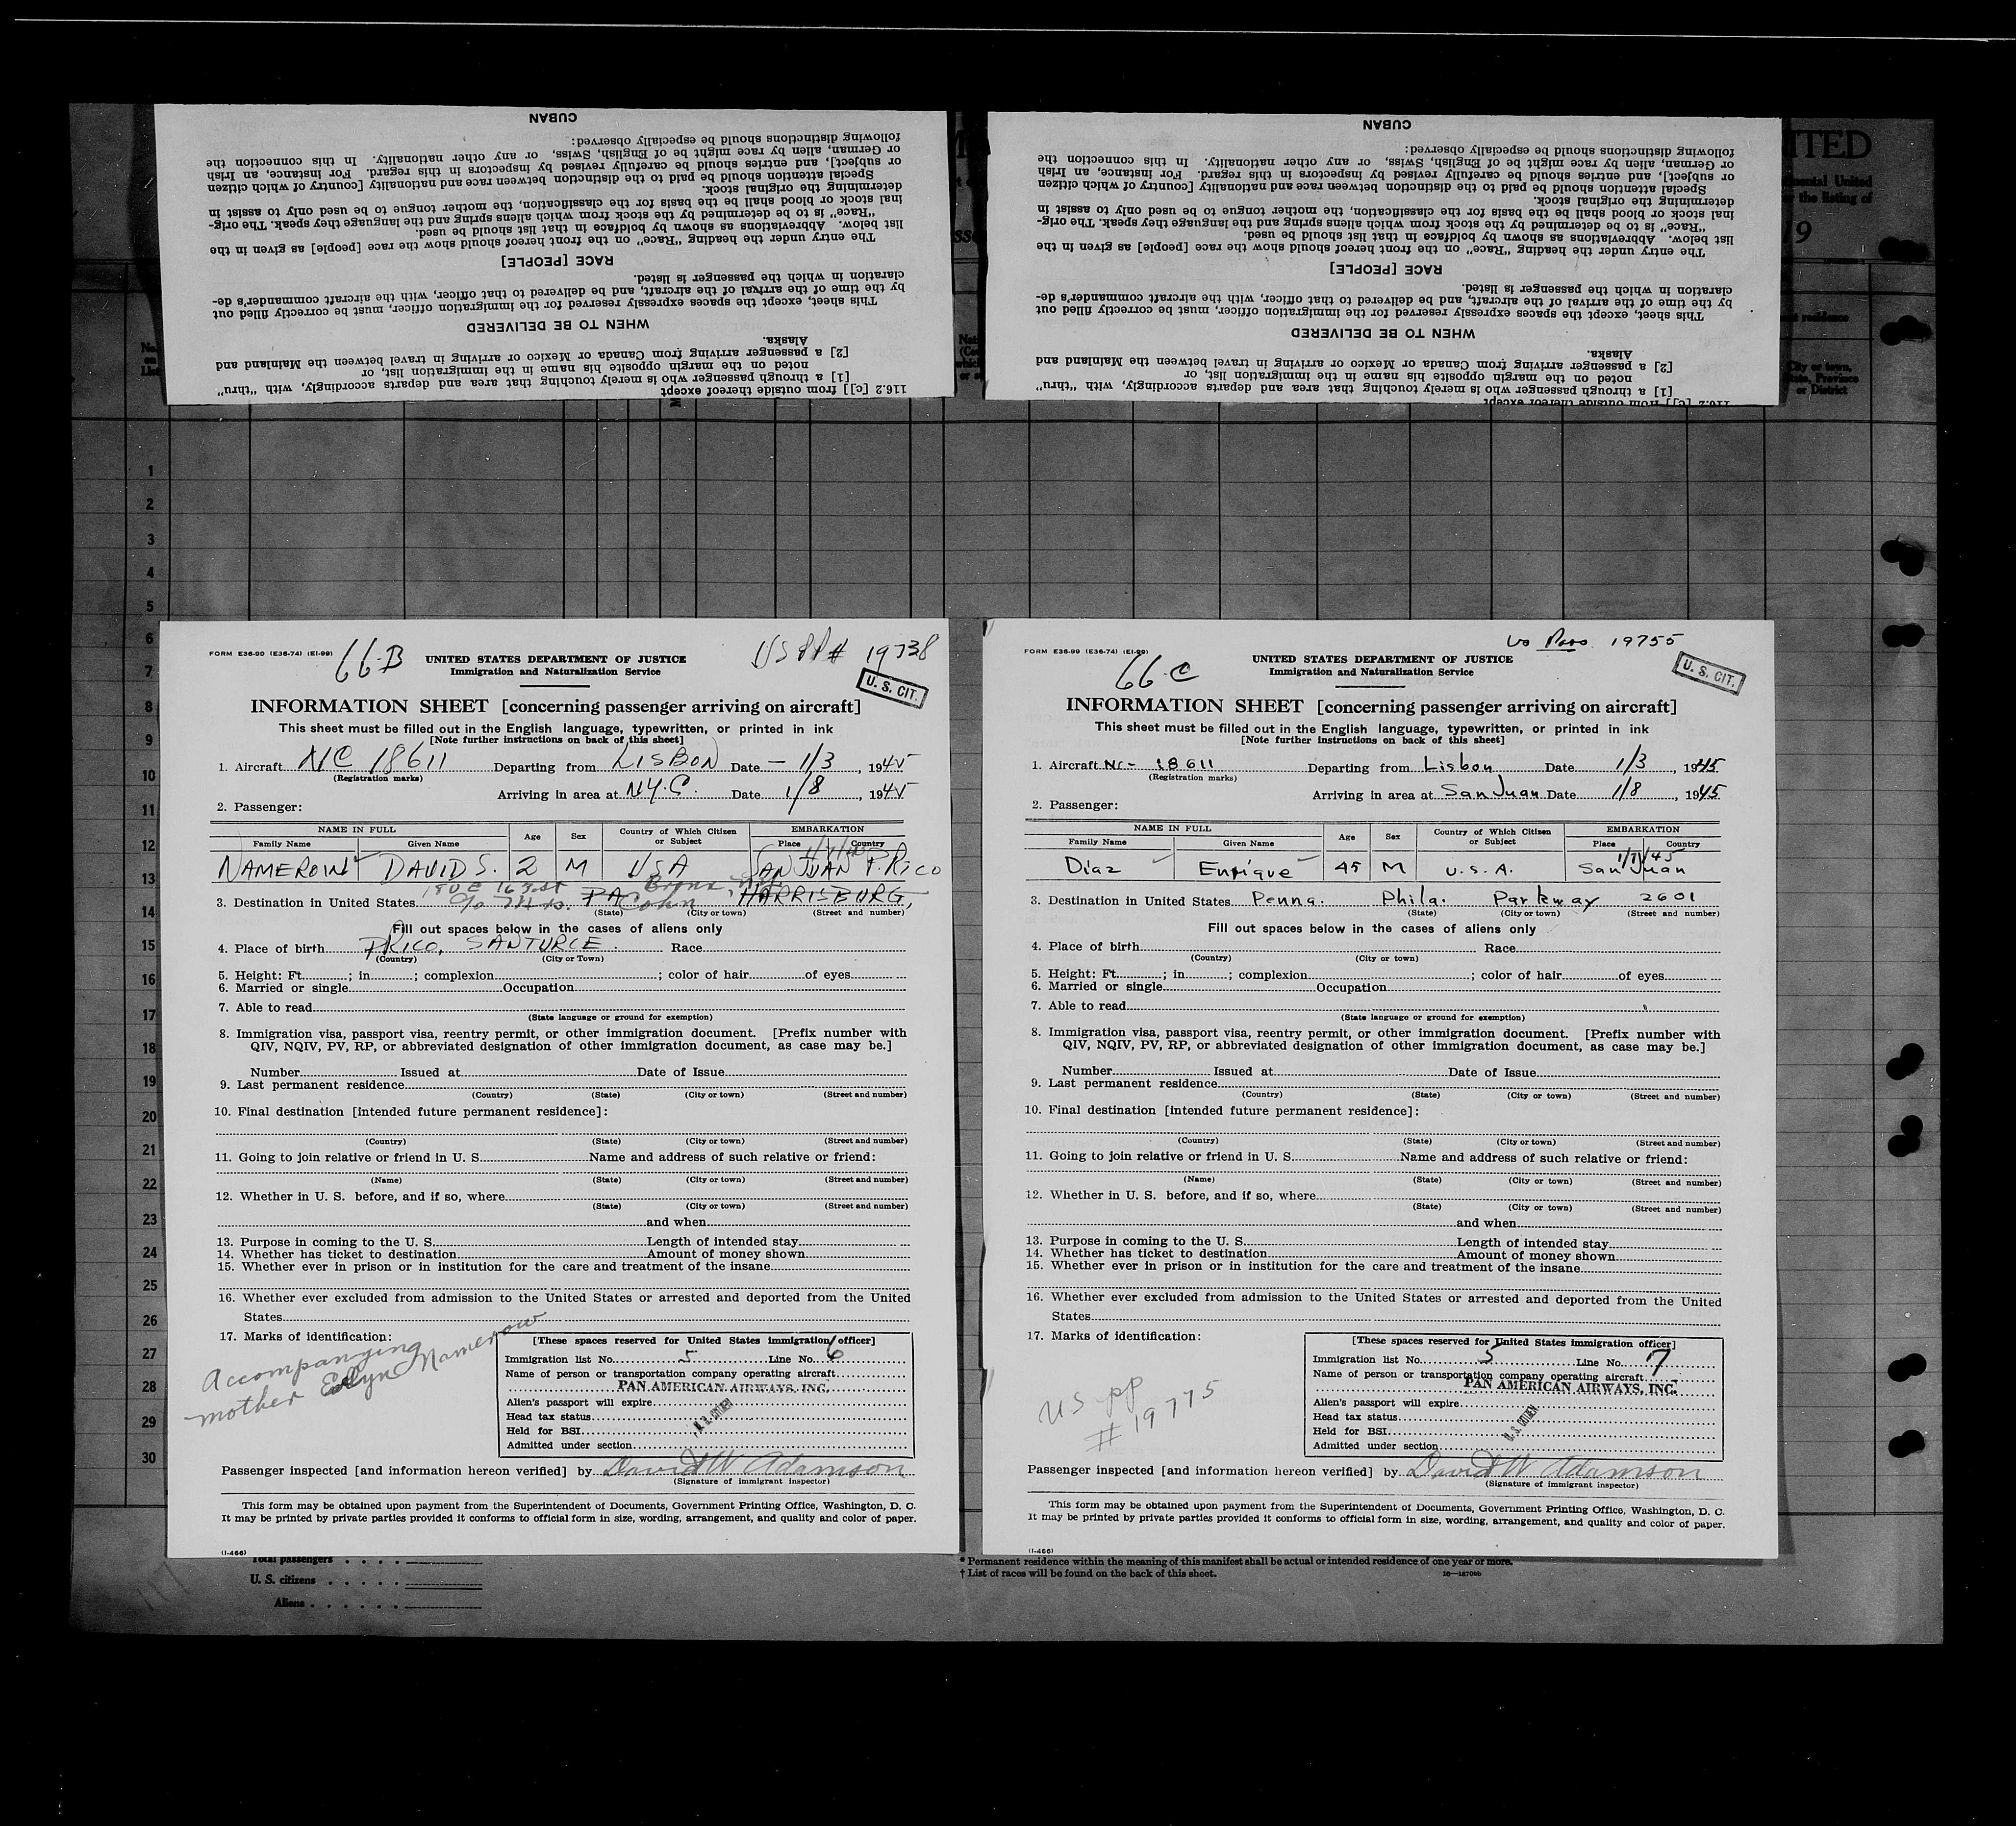 CUBAN
following distinctions should be especially observed:
or German, alien by race might be of English, Swiss, or any other nationality. In this connection the
or subject], and entries should be carefully revised by inspectors in this regard. For instance, an Irish
Special attention should be paid to the distinction between race and nationality [country of which citizen
determining the original stock.
inal stock or blood shall be the basis for the classification, the mother tongue to be used only to assist in
"Race" is to be determined by the stock from which aliens spring and the language they speak. The orig-
list below. Abbreviations as shown by boldface in that list should be used.
The entry under the heading "Race" on the front hereof should show the race [people] as given in the
RACE [PEOPLE]
claration in which the passenger is listed.
by the time of the arrival of the aircraft, and be delivered to that officer, with the aircraft commander's de-
This sheet, except the spaces expressly reserved for the immigration officer, must be correctly filled out
WHEN TO BE DELIVERED
Alaska.
[2] a passenger arriving from Canada or Mexico or arriving in travel between the Mainland and
noted on the margin opposite his name in the immigration list, or
[1] a through passenger who is merely touching that area and departs accordingly, with "thru"
116.2 [c]] from outside thereof except
CUBAN
following distinctions should be especially observed:
or German, alien by race might be of English, Swiss, or any other nationality. In this connection the
or subject], and entries should be carefully revised by inspectors in this regard. For instance, an Irish
Special attention should be paid to the distinction between race and nationality [country of which citizen
determining the original stock.
inal stock or blood shall be the basis for the classification, the mother tongue to be used only to assist in
"Race" is to be determined by the stock from which aliens spring and the language they speak. The orig-
list below. Abbreviations as shown by boldface in that list should be used.
The entry under the heading "Race" on the front hereof should show the race [people] as given in the
RACE [PEOPLE]
claration in which the passenger is listed.
by the time of the arrival of the aircraft, and be delivered to that officer, with the aircraft commander's de-
This sheet, except the spaces expressly reserved for the immigration officer, must be correctly filled out
WHEN TO BE DELIVERED
Alaska.
[2] a passenger arriving from Canada or Mexico or arriving in travel between the Mainland and
noted on the margin opposite his name in the immigration list, or
[1] a through passenger who is merely touching that area and departs accordingly, with "thru"
116.2 [c]] from outside thereof except
ITED
nental United
the listing of
19
residence
City or town,
State, Province
or District
1
2
3
4
5
6
7
8
9
10
11
12
13
14
15
16
17
18
19
20
21
22
23
24
25
26
27
28
29
30
FORM E36-99 (E36-74) (EI-99)
66-B
US PP# 19738
UNITED STATES DEPARTMENT OF JUSTICE
Immigration and Naturalization Service
U. S. CIT.
INFORMATION SHEET [concerning passenger arriving on aircraft]
This sheet must be filled out in the English language, typewritten, or printed in ink
[Note further instructions on back of this sheet]
1. Aircraft NC 18611 Departing from LISBON Date - 1/3, 1945
(Registration marks)
Arriving in area at N.Y.C. Date 1/8, 1945
2. Passenger:
NAME IN FULL Age Sex Country of Which Citizen or Subject EMBARKATION
Family Name Given Name Place Country
1/7/45
NAMEROW DAVID S. 2 M USA SAN JUAN P. RICO
150 E 163 st Bronx, NY.
3. Destination in United States c/o Mrs. Cohn PA HARRISBURG,
(State) (City or town) (Street and number)
Fill out spaces below in the cases of aliens only
4. Place of birth P RICO, SANTURCE. Race
(Country) (City or Town)
5. Height: Ft. ; in ; complexion ; color of hair of eyes
6. Married or single Occupation
7. Able to read
(State language or ground for exemption)
8. Immigration visa, passport visa, reentry permit, or other immigration document. [Prefix number with
QIV, NQIV, PV, RP, or abbreviated designation of other immigration document, as case may be.]
Number Issued at Date of Issue
9. Last permanent residence
(Country) (State) (City or town) (Street and number)
10. Final destination [intended future permanent residence]:
(Country) (State) (City or town) (Street and number)
11. Going to join relative or friend in U. S. Name and address of such relative or friend:
(Name) (State) (City or town) (Street and number)
12. Whether in U. S. before, and if so, where
(State) (City or town) (Street and number)
and when
13. Purpose in coming to the U. S. Length of intended stay
14. Whether has ticket to destination Amount of money shown
15. Whether ever in prison or in institution for the care and treatment of the insane
16. Whether ever excluded from admission to the United States or arrested and deported from the United
States
17. Marks of identification:
Accompanying
mother Evelyn Namerow
[These spaces reserved for United States immigration officer]
Immigration list No. 5 Line No. 6
Name of person or transportation company operating aircraft
PAN AMERICAN AIRWAYS, INC.
Alien's passport will expire
Head tax status
Held for BSI
Admitted under section
U. S. CITIZEN
Passenger inspected [and information hereon verified] by David W Adamson
(Signature of immigrant inspector)
This form may be obtained upon payment from the Superintendent of Documents, Government Printing Office, Washington, D. C.
It may be printed by private parties provided it conforms to official form in size, wording, arrangement, and quality and color of paper.
(I-466)
FORM E36-99 (E36-74) (EI-99)
66-C
US Pass 19755
UNITED STATES DEPARTMENT OF JUSTICE
Immigration and Naturalization Service
U. S. CIT.
INFORMATION SHEET [concerning passenger arriving on aircraft]
This sheet must be filled out in the English language, typewritten, or printed in ink
[Note further instructions on back of this sheet]
1. Aircraft Nc- 18611 Departing from Lisbon Date 1/3, 1945
(Registration marks)
Arriving in area at San Juan Date 1/8, 1945
2. Passenger:
NAME IN FULL Age Sex Country of Which Citizen or Subject EMBARKATION
Family Name Given Name Place Country
1/7/45
Diaz Enrique 45 M U.S.A. San Juan
3. Destination in United States Penna. Phila. Parkway 2601
(State) (City or town) (Street and number)
Fill out spaces below in the cases of aliens only
4. Place of birth Race
(Country) (City or town)
5. Height: Ft. ; in ; complexion ; color of hair of eyes
6. Married or single Occupation
7. Able to read
(State language or ground for exemption)
8. Immigration visa, passport visa, reentry permit, or other immigration document. [Prefix number with
QIV, NQIV, PV, RP, or abbreviated designation of other immigration document, as case may be.]
Number Issued at Date of Issue
9. Last permanent residence
(Country) (State) (City or town) (Street and number)
10. Final destination [intended future permanent residence]:
(Country) (State) (City or town) (Street and number)
11. Going to join relative or friend in U. S. Name and address of such relative or friend:
(Name) (State) (City or town) (Street and number)
12. Whether in U. S. before, and if so, where
(State) (City or town) (Street and number)
and when
13. Purpose in coming to the U. S. Length of intended stay
14. Whether has ticket to destination Amount of money shown
15. Whether ever in prison or in institution for the care and treatment of the insane
16. Whether ever excluded from admission to the United States or arrested and deported from the United
States
17. Marks of identification:
US PP
# 19775
[These spaces reserved for United States immigration officer]
Immigration list No. 5 Line No. 7
Name of person or transportation company operating aircraft
PAN AMERICAN AIRWAYS, INC.
Alien's passport will expire
Head tax status
Held for BSI
Admitted under section
U. S. CITIZEN
Passenger inspected [and information hereon verified] by David W Adamson
(Signature of immigrant inspector)
This form may be obtained upon payment from the Superintendent of Documents, Government Printing Office, Washington, D. C.
It may be printed by private parties provided it conforms to official form in size, wording, arrangement, and quality and color of paper.
(I-466)
Total passengers
U. S. citizens
Aliens
* Permanent residence within the meaning of this manifest shall be actual or intended residence of one year or more.
† List of races will be found on the back of this sheet.